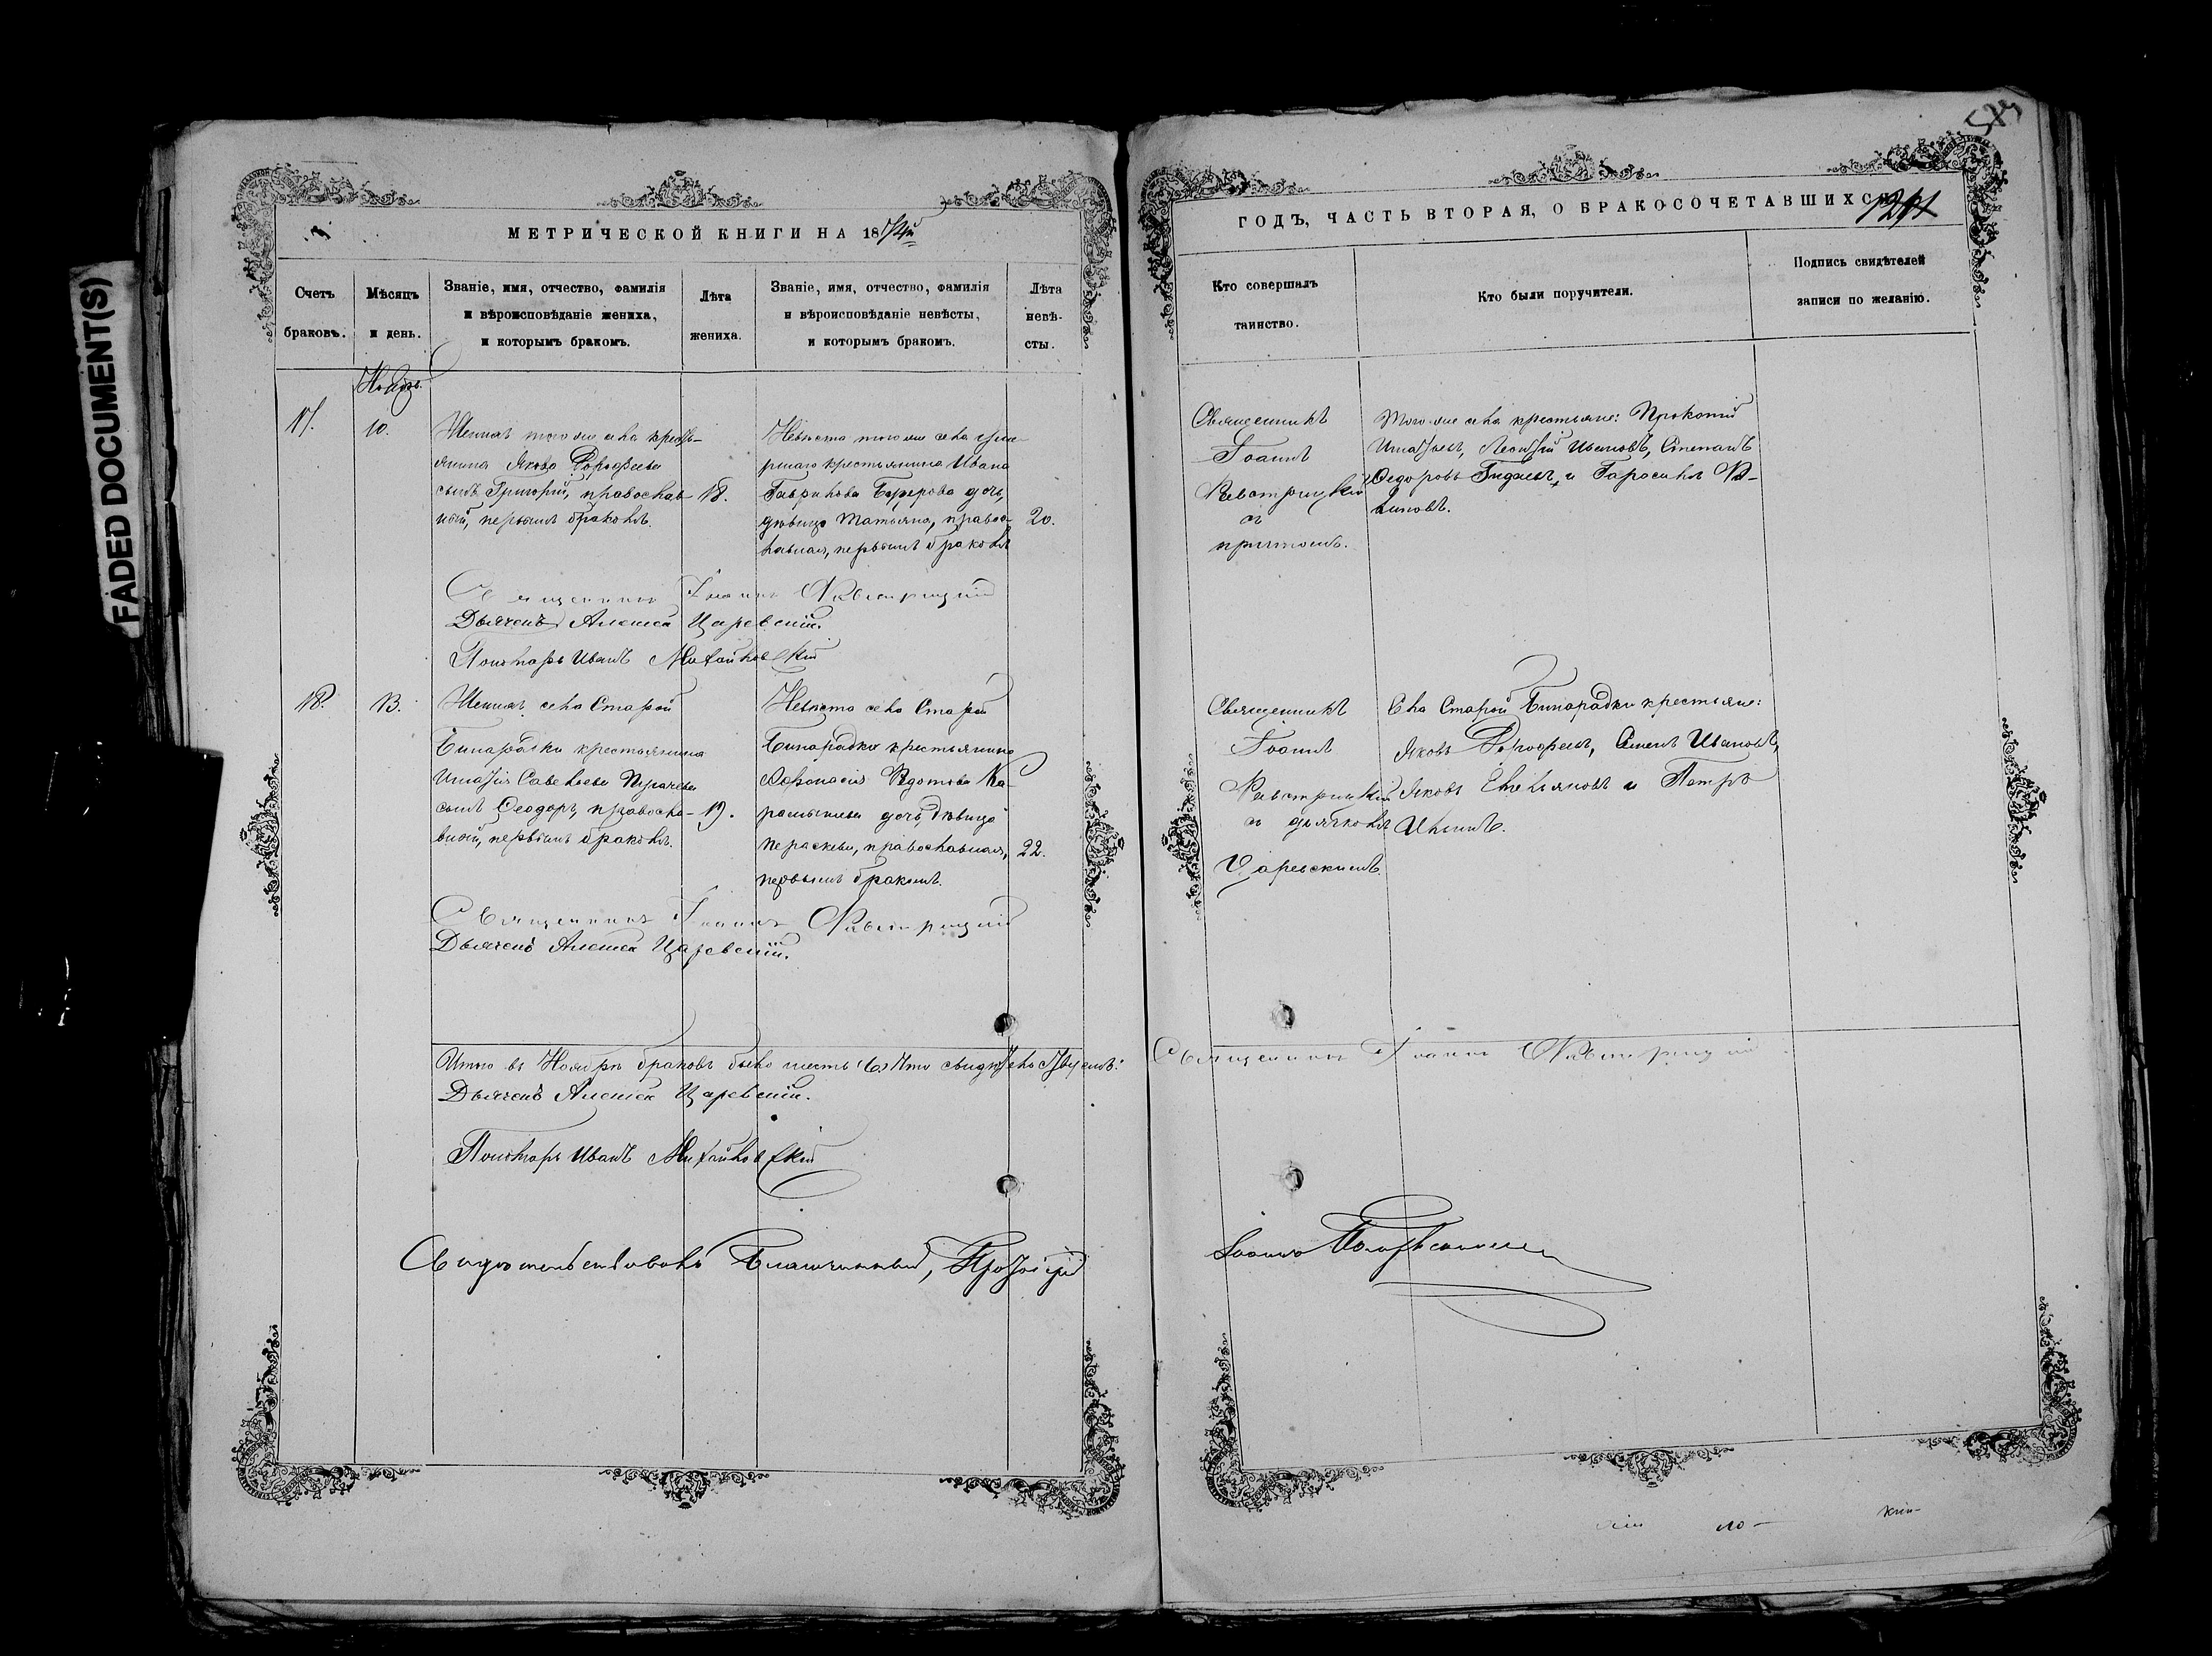 FADED DOCUMENT(S)
МЕТРИЧЕСКОЙ КНИГИ НА 1874й
Счетъ браковъ.
Мѣсяцъ и день.
Званіе, имя, отчество, фамилія
и вѣроисповѣданіе жениха,
и которымъ бракомъ.
Лѣта жениха.
Званіе, имя, отчество, фамилія
и вѣроисповѣданіе невѣсты,
и которымъ бракомъ.
Лѣта невѣ-
сты.
Ноябрь.
17.
10.
Женихъ того же села кресть-
янина Якова Дорофеева
сынъ Григорій, православ-
ный, первымъ бракомъ.
18.
Невѣста того же села
крестьянина Ивана
Гаврилова дочь,
дѣвица Татьяна, правос-
лавная, первымъ бракомъ
20.
Священникъ Іоаннъ
Дьячекъ Алексѣй Царевскій.
Пономарь Иванъ Михайловскій
18.
13.
Женихъ села Старой
Бинарадки крестьянина
Игнатія Савельева
сынъ Ѳеодоръ, правосла-
вный, первымъ бракомъ.
19.
Невѣста села Старой
Бинарадки крестьянина
Аѳанасія Ѳедотова Ка-
дочь, дѣвица
Параскева, православная,
первымъ бракомъ.
22.
Священникъ Іоаннъ
Дьячекъ Алексѣй Царевскій.
Итого въ Ноябрѣ браковъ было шесть (6) Что свидѣтельствуемъ:
Дьячекъ Алексѣй Царевскій.
Пономарь Иванъ Михайловскій
Свидѣтельствовалъ Благочинный, Протоіерей
ГОДЪ, ЧАСТЬ ВТОРАЯ, О БРАКОСОЧЕТАВШИХСЯ
Кто совершалъ
таинство.
Кто были поручители.
Подпись свидѣтелей
записи по желанію.
Священникъ
Іоаннъ
съ
причтомъ.
Того же села крестьяне: Прокопій
Игнатьевъ, Леонтій Ивановъ, Степанъ
Ѳедоровъ и Герасимъ
Священникъ
Іоаннъ
съ дьячкомъ
Царевскимъ.
Села Старой Бинарадки крестьяне:
Яковъ Дорофеевъ, Семенъ Ивановъ,
Яковъ Емельяновъ и Петръ
Ильинъ.
Священникъ Іоаннъ
Іоаннъ